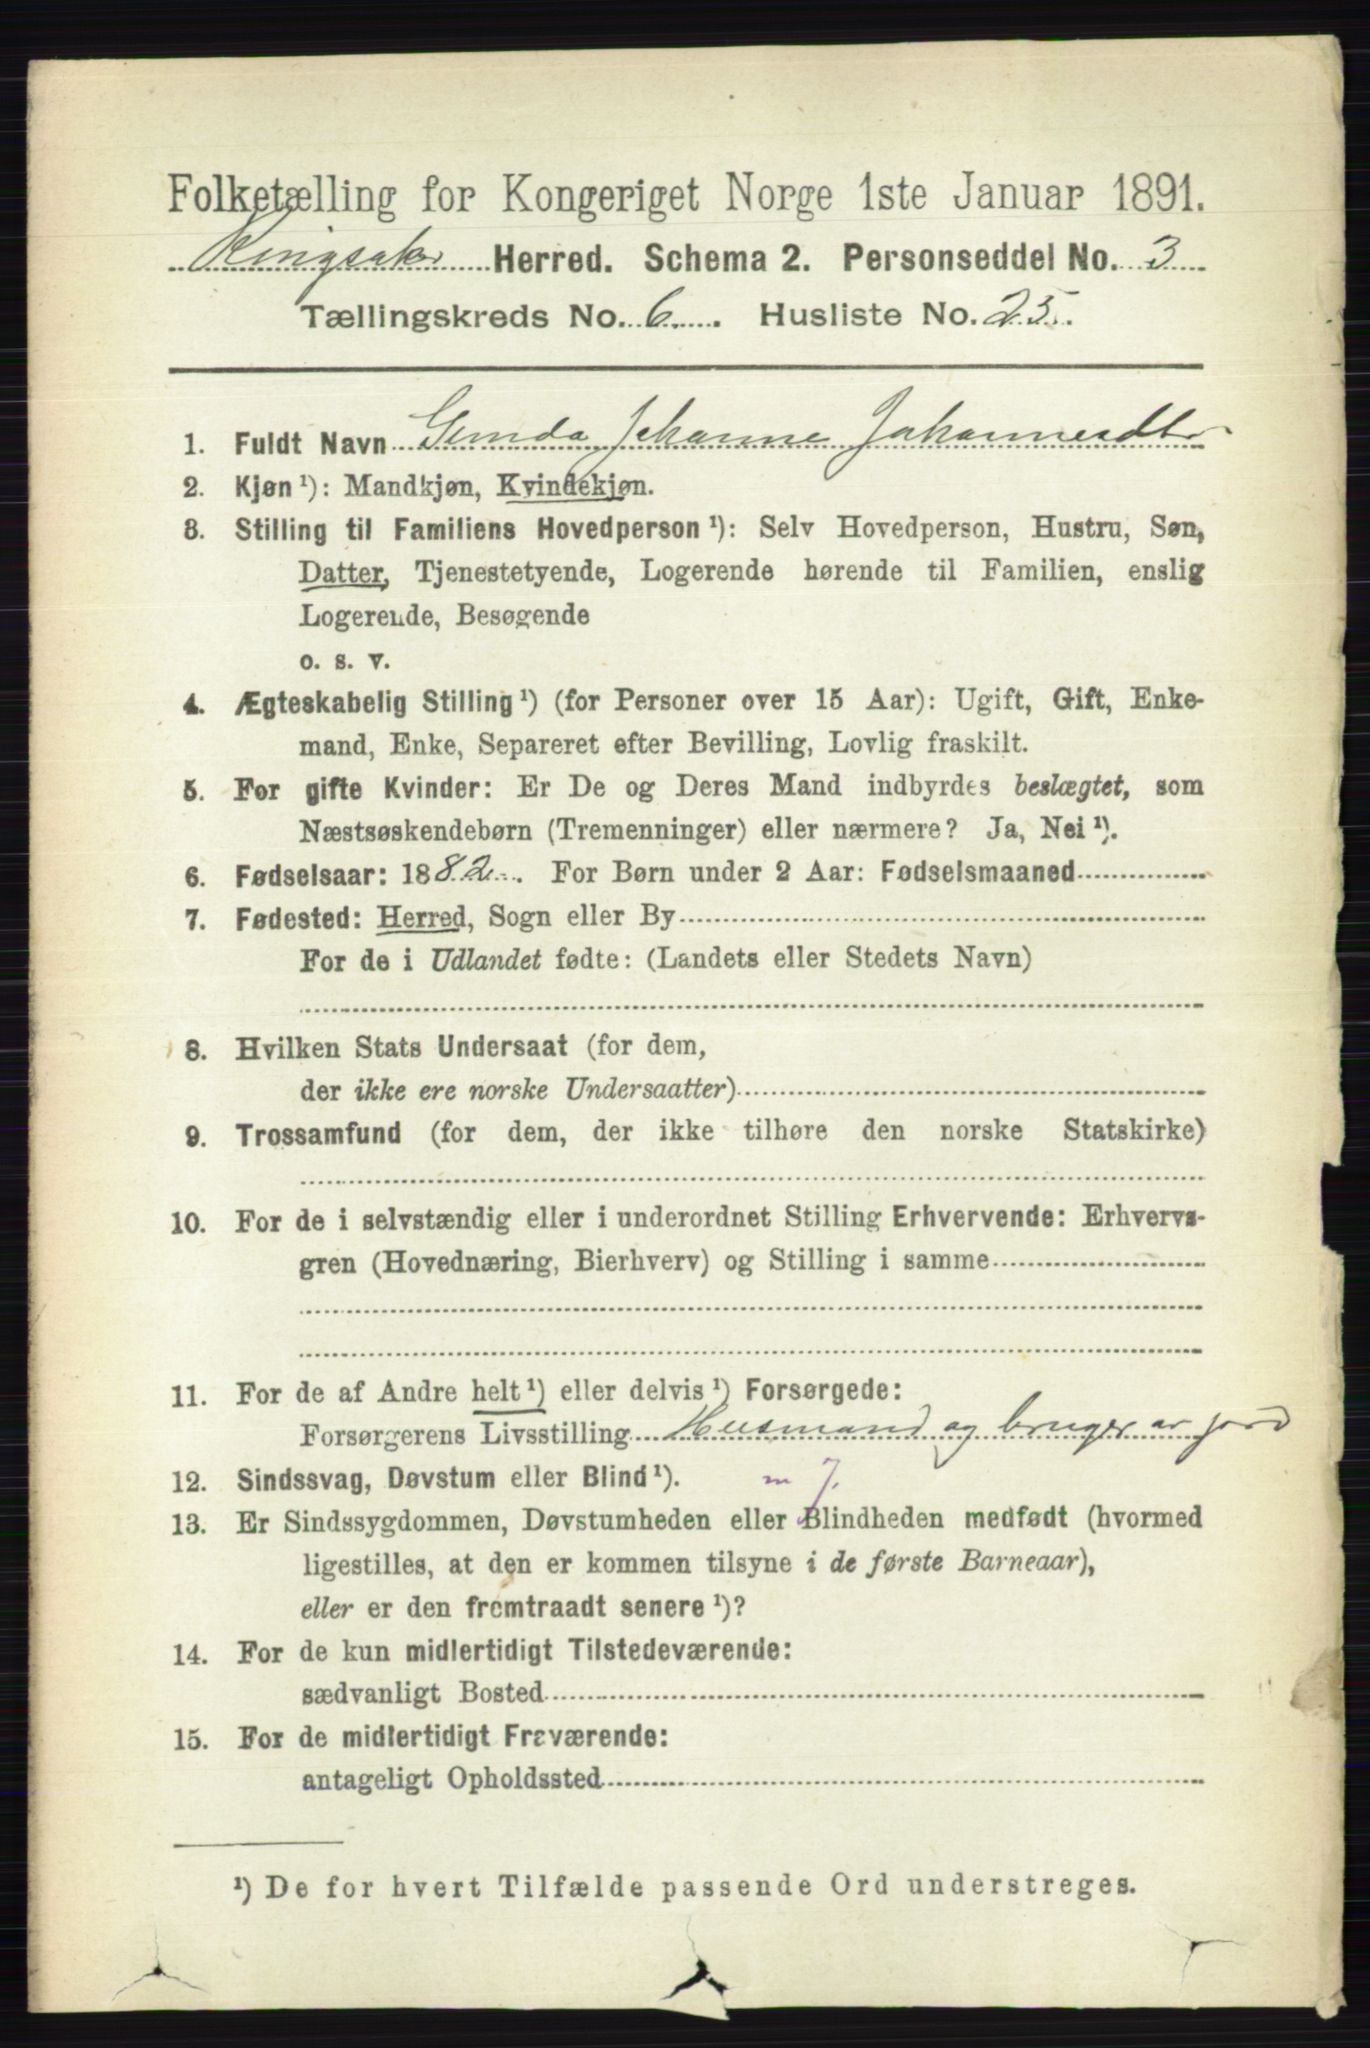 Folketælling for Kongeriget Norge 1ste Januar 1891.
Ringsaker Herred. Schema 2. Personseddel No. 3
Tællingskreds No. 6. Husliste No. 25.
1. Fuldt Navn Johanne Johannesdtr
2. Kjøn ¹): Mandkjøn, Kvindekjøn.
3. Stilling til Familiens Hovedperson ¹): Selv Hovedperson, Hustru, Søn,
Datter, Tjenestetyende, Logerende hørende til Familien, enslig
Logerende, Besøgende
o. s. v.
4. Ægteskabelig Stilling ¹) (for Personer over 15 Aar): Ugift, Gift, Enke-
mand, Enke, Separeret efter Bevilling, Lovlig fraskilt.
5. For gifte Kvinder: Er De og Deres Mand indbyrdes beslægtet, som
Næstsøskendebørn (Tremenninger) eller nærmere? Ja, Nei ¹).
6. Fødselsaar: 1882. For Børn under 2 Aar: Fødselsmaaned
7. Fødested: Herred, Sogn eller By
For de i Udlandet fødte: (Landets eller Stedets Navn)
8. Hvilken Stats Undersaat (for dem,
der ikke ere norske Undersaatter)
9. Trossamfund (for dem, der ikke tilhøre den norske Statskirke)
10. For de i selvstændig eller i underordnet Stilling Erhvervende: Erhvervs-
gren (Hovednæring, Bierhverv) og Stilling i samme
11. For de af Andre helt ¹) eller delvis ¹) Forsørgede:
Forsørgerens Livsstilling Husmand og bruger av jord
12. Sindssvag, Døvstum eller Blind ¹). m 7.
13. Er Sindssygdommen, Døvstumheden eller Blindheden medfødt (hvormed
ligestilles, at den er kommen tilsyne i de første Barneaar),
eller er den fremtraadt senere ¹)?
14. For de kun midlertidigt Tilstedeværende:
sædvanligt Bosted
15. For de midlertidigt Fraværende:
antageligt Opholdssted
¹) De for hvert Tilfælde passende Ord understreges.